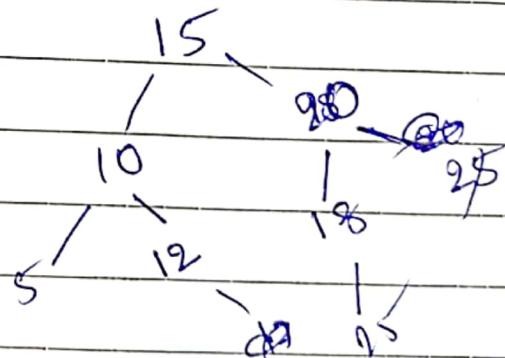 15
20
10 25
18
5 12
25